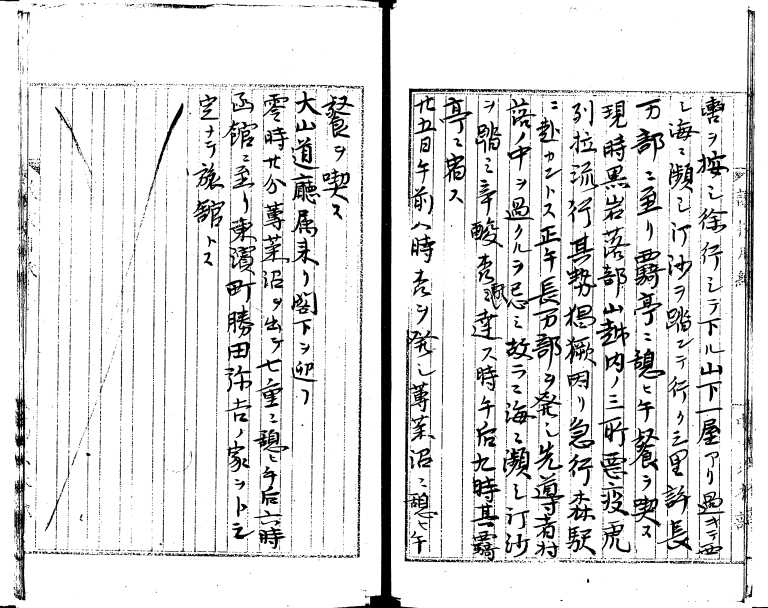 轡ヲ按シ徐行シテ下ル山下一屋アリ過キテ西
シ海ニ瀕シ汀沙ヲ踏ンテ行ク三里許長
万部ニ至リ覊亭ニ憩ヒ午餐ヲ喫ス
現時黒岩落部山越内ノ三所悪疫虎
列拉流行其勢猖獗因リ急行森駅
ニ赴カントス正午長万部ヲ発シ先導者村
落ノ中ヲ過クルヲ忌ミ故ラニ海ニ瀕シ汀沙
ヲ踏ミ辛酸 達ス時午后九時其覊
亭ニ宿ス
廿五日午前八時 ヲ発シ蓴菜沼ニ憩ヒ午
餐ヲ喫ス
大山道庁属来リ閣下ヲ迎フ
零時廿分蓴菜沼ヲ出テ七重ニ憩ヒ午后六時
函館ニ至リ東濱町勝田弥吉ノ家ヲトシ
定メテ旅館トス